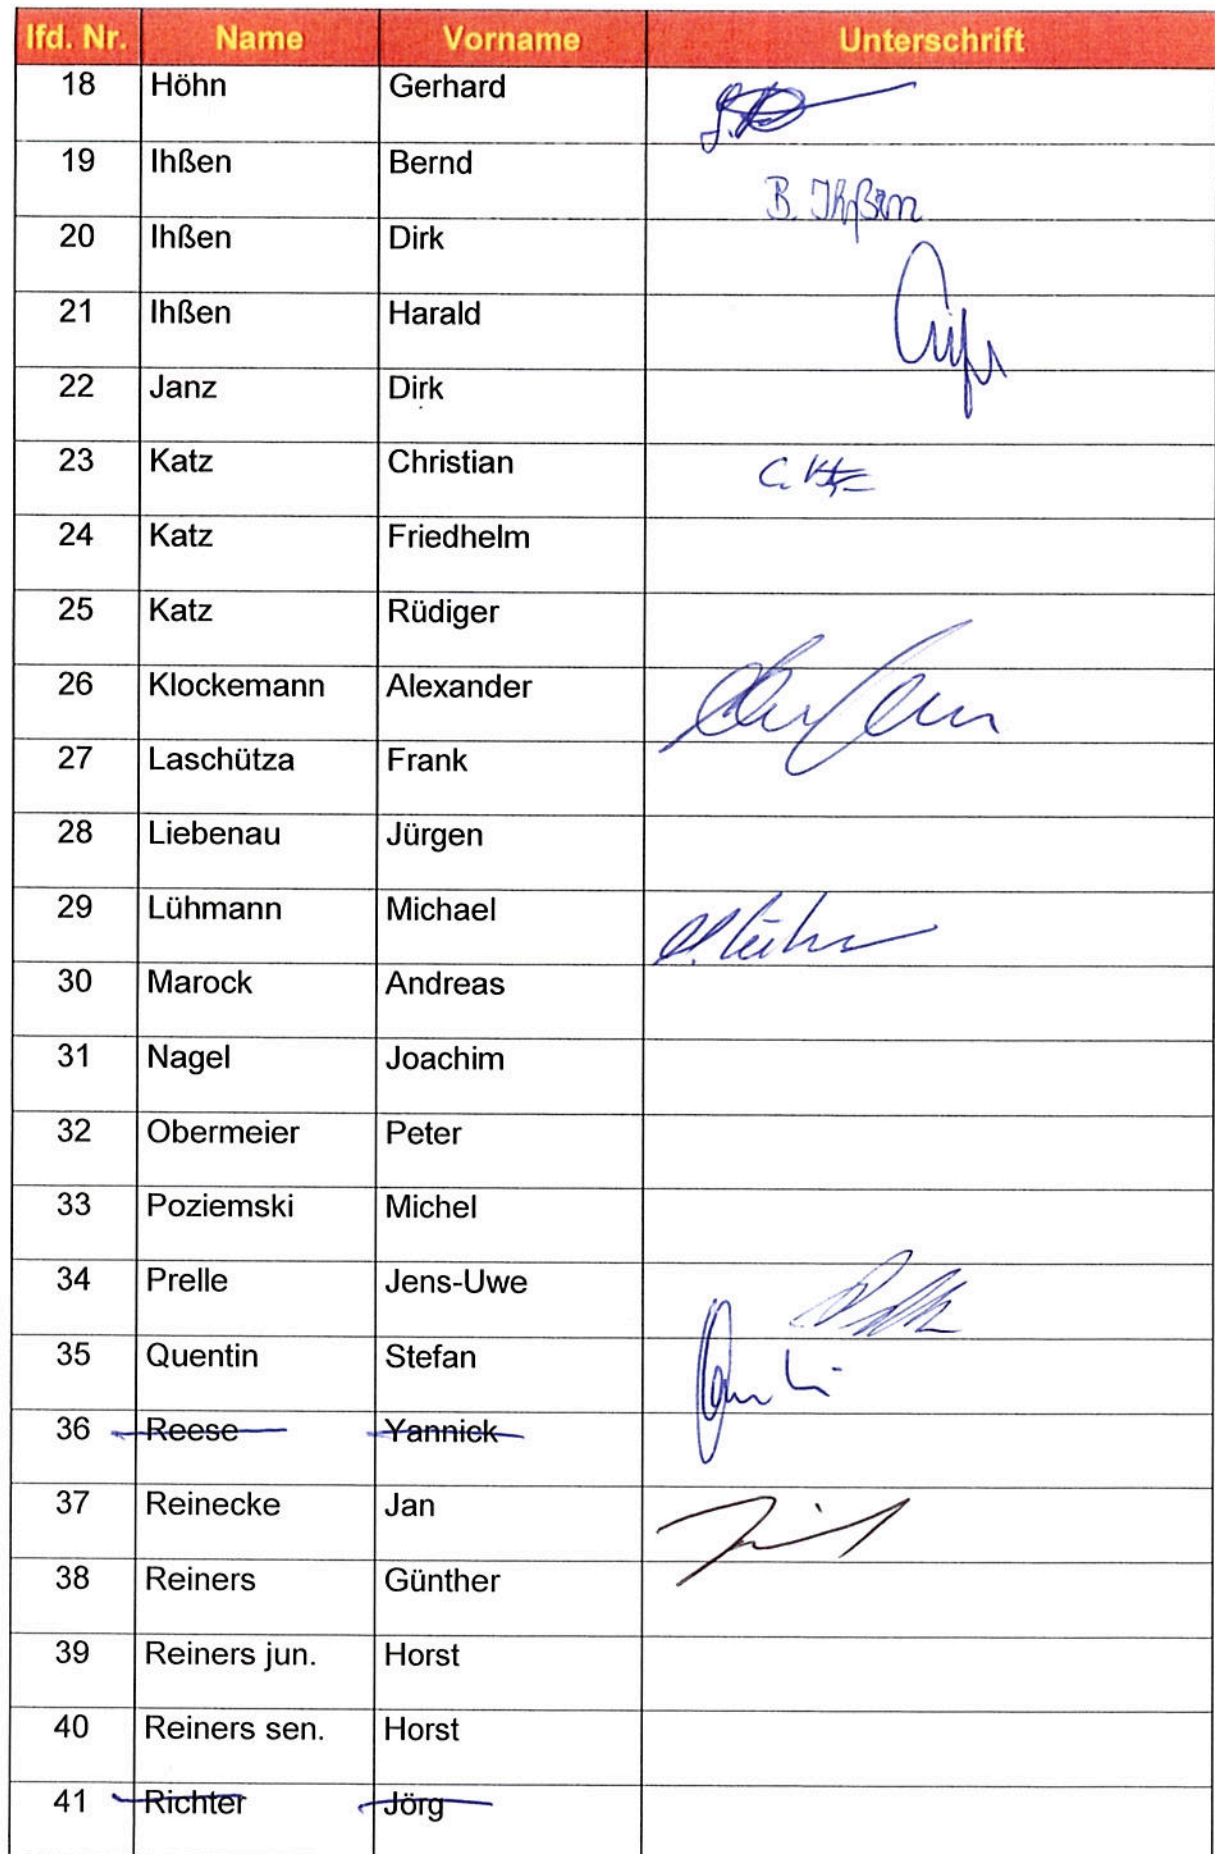 lfd. Nr. Name Vorname Unterschrift
18 Höhn Gerhard
19 Ihßen Bernd B. Ihßen
20 Ihßen Dirk
21 Ihßen Harald
22 Janz Dirk
23 Katz Christian
24 Katz Friedhelm
25 Katz Rüdiger
26 Klockemann Alexander
27 Laschütza Frank
28 Liebenau Jürgen
29 Lühmann Michael
30 Marock Andreas
31 Nagel Joachim
32 Obermeier Peter
33 Poziemski Michel
34 Prelle Jens-Uwe
35 Quentin Stefan
36 Reese Yannick
37 Reinecke Jan
38 Reiners Günther
39 Reiners jun. Horst
40 Reiners sen. Horst
41 Richter Jörg